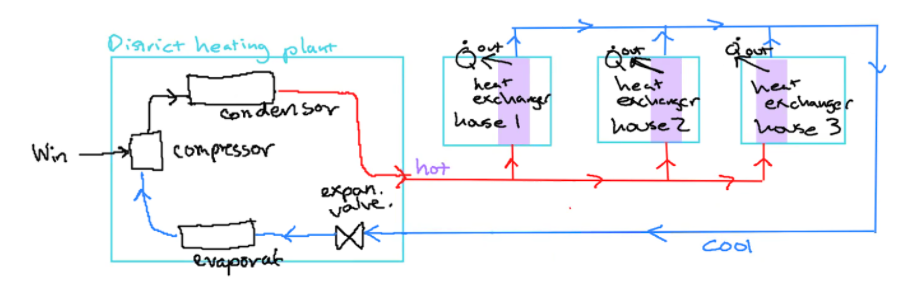 District heating plant
condensor
Win
compressor
evaporat
expan.
valve.
hot
Q̇out
heat
exchanger
house 1
Q̇out
heat
exchanger
house 2
Q̇out
heat
exchanger
house 3
cool